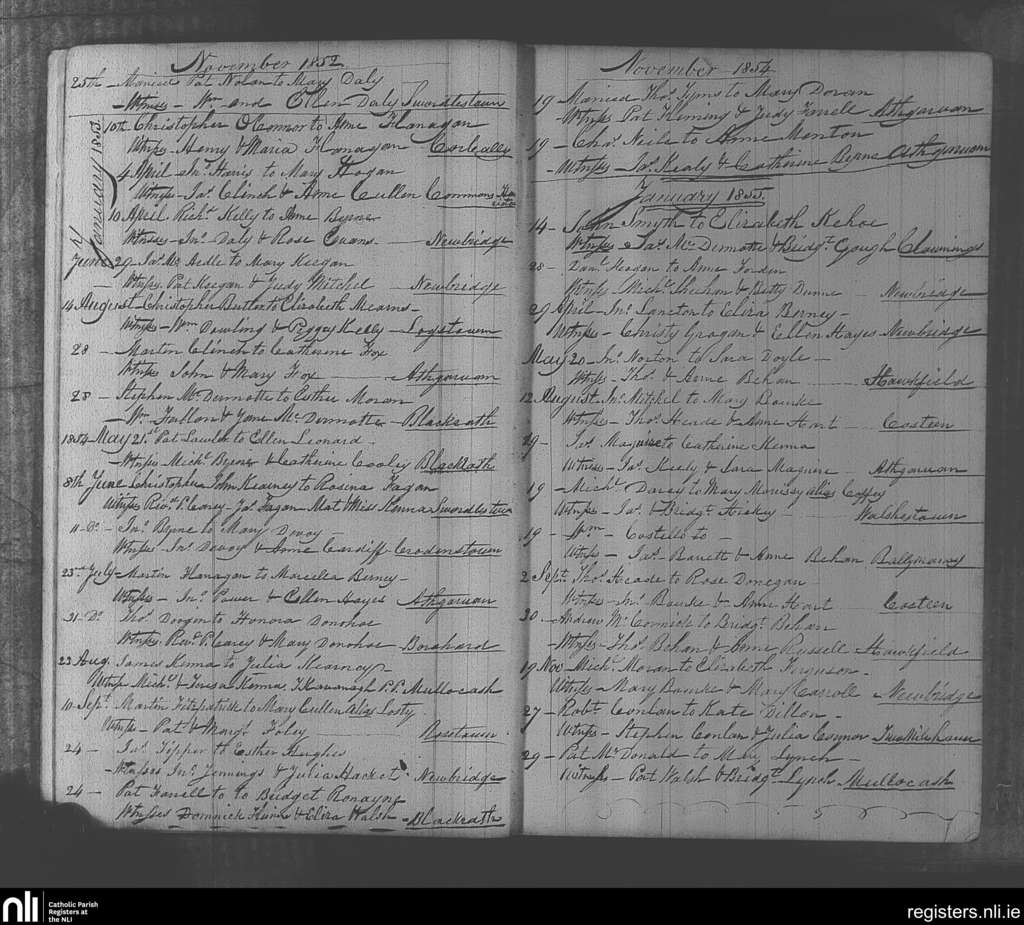 November 1852
25th - Married Pat Nolan to Mary Daly
- Witness - Wm and Ellen Daly Swordlestown
January 1853
10th Christopher O Connor to Anne Flanagan
Witness Henry & Maria Flanagan Corbally
4 April Harris to Mary Hogan
Witness - Jas. Clinch & Anne Cullen Commons
10 April Richd. Kelly to Anne Byrne
Witness - Jno. Daly & Rose Evans - Newbridge
June 29 Jas. Mc Ardle to Mary Keegan
- Witness. Pat Keegan & Judy Mitchel - Newbridge
14 August Christopher Butler to Elizabeth Mearns -
Witness - Wm Dowling & Peggy Kelly - Logstown
28 - Martin Clinch to Catherine Fox
Witness John & Mary Fox - Athgarvan
28 - Stephen Mc Dermotte to Esther Moran
- Wm Fallon & Jane Mc Dermotte - Blackrath
1854 - May 21st Pat Lawler to Ellen Leonard -
- Witness Michl. Byrne & Catherine Cooley Blackrath
8th June Christopher John Kearney to Rosena Fagan
Witness Revd. P. Carey - Jas. Fagan Mat & Miss Kenna Swordlestown
11 - Do - Jno. Byrne to Mary Devoy -
Witness Jno. Devoy & Anne Cardiff - Crodenstown
23rd July - Martin Flanagan to Marcella Berney -
Witness - Jno. Power & Ellen Hayes Athgarvan
31 - Do Thos. Doogan to Honora Donohoe
Witness Revd. P. Carey & Mary Donohoe - Boughard
23 Aug. James Kenna to Julia Kearney
Witness Michl. & Teresa Kenna, J Kavanagh P.P. Mullocash
10 Sept. Martin Fitzpatrick to Mary Cullen alias Losty
Witness - Pat & Margt. Foley Rosetown
24 - Jas. Tipper to Esther Hughes
- Witnesses Jno. Jennings & Julia Hacket - Newbridge
24 - Pat Farrell to to Bridget Ronayne
Witnesses Dominick & Eliza Walsh - Blackrath
November 1854
19 - Married Thos. Tyms to Mary Doran
- Witness Pat Fleming & Judy Farrell Athgarvan
19 - Chas. Neile to Anne Menton
- Witness - Jas. Kealy & Catherine Byrne Athgarvan
January 1855
14 - John Smyth to Elizabeth Kehoe
Witness - Jas. Mc Dermotte & Bridgt. Gough Clownings
28 - Danl. Heagan to Anne
Witness Michl. Sheehan & Betty Dunne Newbridge
29 April - Jno. Langton to Eliza Berney -
Witness - Christy Grogan & Ellen Hayes - Newbridge
May 20 - Jno. Norton to Sara Doyle -
Witness - Thos. & Anne Behan - Hawkfield
12 August Jno. Mitchel to Mary Bourke -
Witness - Thos. Heade & Anne Hart - Costeen
19 - Jas. Maguire to Catherine Kenna
Witness - Jas. Keely & Sara Maguire - Athgarvan
19 - Michl. Darcy to Mary Morissy alias Coffey
Witness - Jas. & Bridgt. - Walshestown
19 - Wm Costello to -
Witness - Jas. Barrett & Anne Behan Ballymany
2 Sept. Thos. Heade to Rose Donegan
Witness - Jno. Bourke & Anne Hart Costeen
30 - Andrew Mc Cormick to Bridgt. Behan
- Witness - Thos. Behan & Anne Russell - Hawkfield
19 Nov Michl. Moran to Elizabeth Ferguson -
Witness - Mary Bourke & Mary Carroll - Newbridge
27 - Robt. Conlan to Kate Dillon -
Witness - Stephen Conlan & Julia Connor Twomilehouse
29 - Pat Mc Donald to Mary Lynch -
Witness - Pat Walsh & Bridgt. Lynch - Mullocash
nli
Catholic Parish
Registers at
the NLI
registers.nli.ie